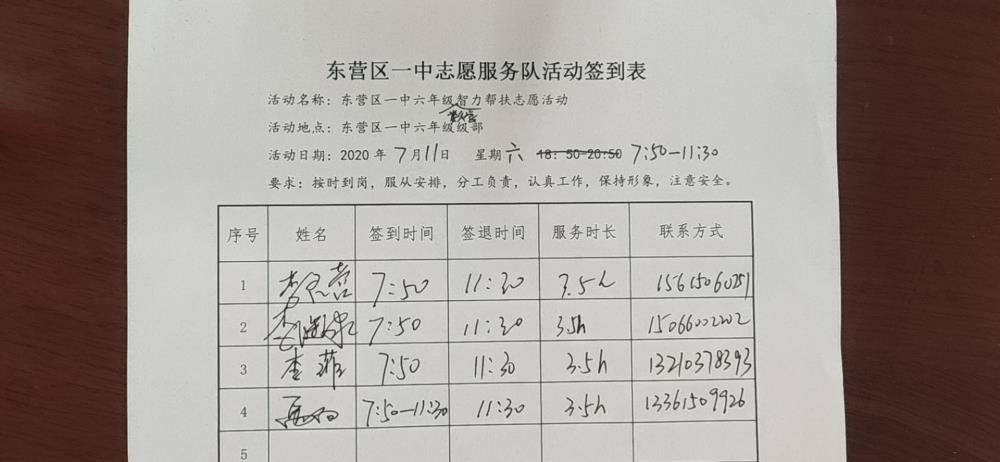 东营区一中志愿服务队活动签到表
活动名称：东营区一中六年级智力帮扶志愿活动
活动地点：东营区一中六年级级部
活动日期：2020 年 7月11日 星期六 18：50-20:50 7:50-11:30
要求：按时到岗，服从安排，分工负责，认真工作，保持形象，注意安全。
序号 姓名 签到时间 签退时间 服务时长 联系方式
1 7:50 11:30 3.5h 15615060251
2 7:50 11:30 3.5h 15066002202
3 李菲 7:50 11:30 3.5h 13210378393
4 7:50-11:30 11:30 3.5h 13361509926
5